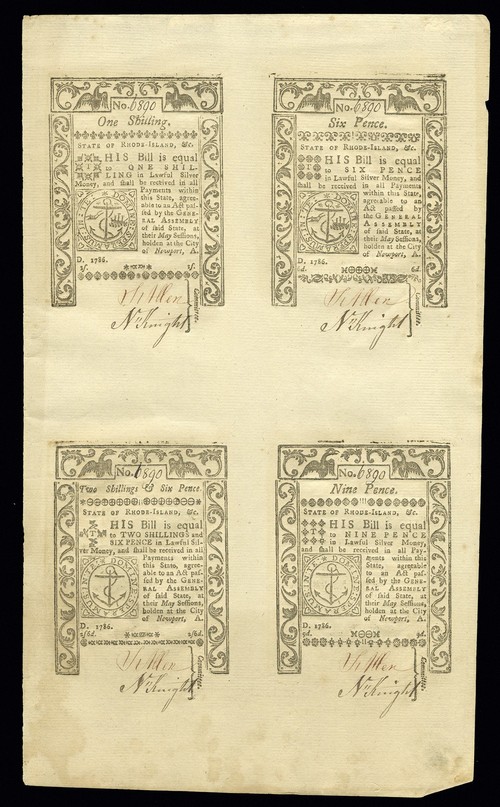 No. 6890
One Shilling.
STATE OF RHODE-ISLAND, &c.
THIS Bill is equal
to ONE SHIL-
LING in Lawful Silver
Money, and shall be received in all
Payments within
this State, agree-
able to an Act pas-
sed by the GENE-
RAL ASSEMBLY
of said State, at
their May Sessions,
holden at the City
of Newport, A.
D. 1786.
1s. 1s.
Committee.
N. Knight
No. 6890
Six Pence.
STATE OF RHODE-ISLAND, &c.
THIS Bill is equal
to SIX PENCE
in Lawful Silver Money, and
shall be received in all Payments
within this State,
agreeable to an
Act passed by
the GENERAL
ASSEMBLY
of said State, at
their May Sessions,
holden at the City
of Newport, A.
D. 1786.
6d. 6d.
Committee.
N. Knight
No. 6890
Two Shillings & Six Pence
STATE OF RHODE-ISLAND, &c.
THIS Bill is equal
to TWO SHILLINGS and
SIX PENCE in Lawful Sil-
ver Money, and shall be received in all
Payments within
this State, agree-
able to an Act pas-
sed by the GENE-
RAL ASSEMBLY
of said State, at
their May Sessions,
holden at the City
of Newport, A.
D. 1786.
2/6d. 2/6d.
Committee.
N. Knight
No. 6890
Nine Pence.
STATE OF RHODE-ISLAND, &c.
THIS Bill is equal
to NINE PENCE
in Lawful Silver Money,
and shall be received in all Pay-
ments within this
State, agreeable
to an Act pas-
sed by the GENE-
RAL ASSEMBLY
of said State, at
their May Sessions,
holden at the City
of Newport, A.
D. 1786.
9d. 9d.
Committee.
N. Knight